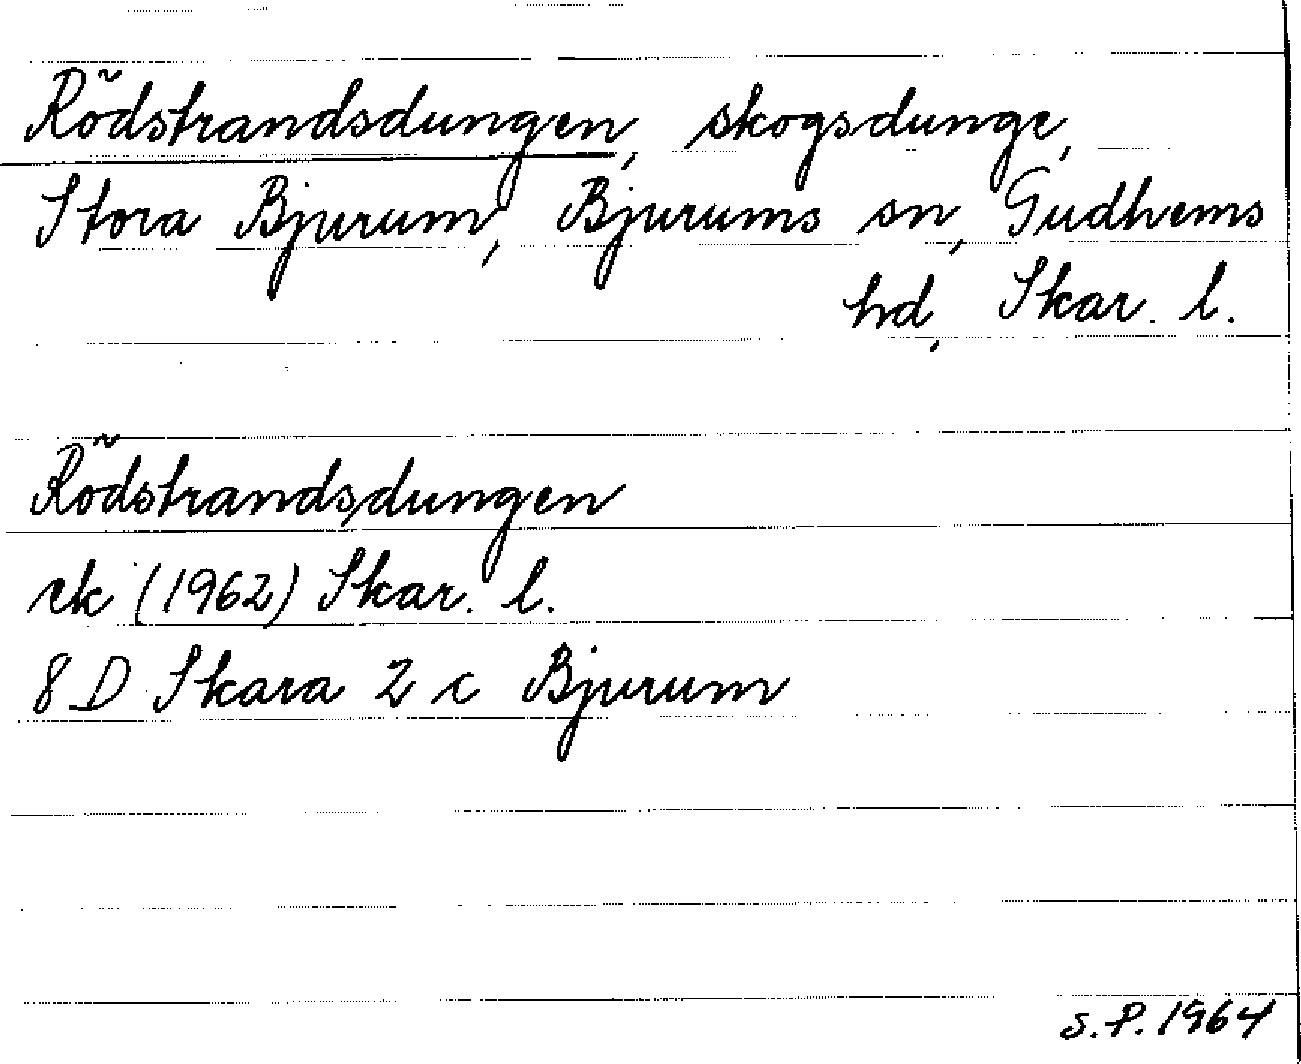 Rödstrandsdungen, skogsdunge,
Stora Bjurum, Bjurums sn, Gudhems
hd, Skar. l.
Rödstrandsdungen
ek (1962) Skar. l.
8 D Skara 2 c Bjurum
S.P. 1964